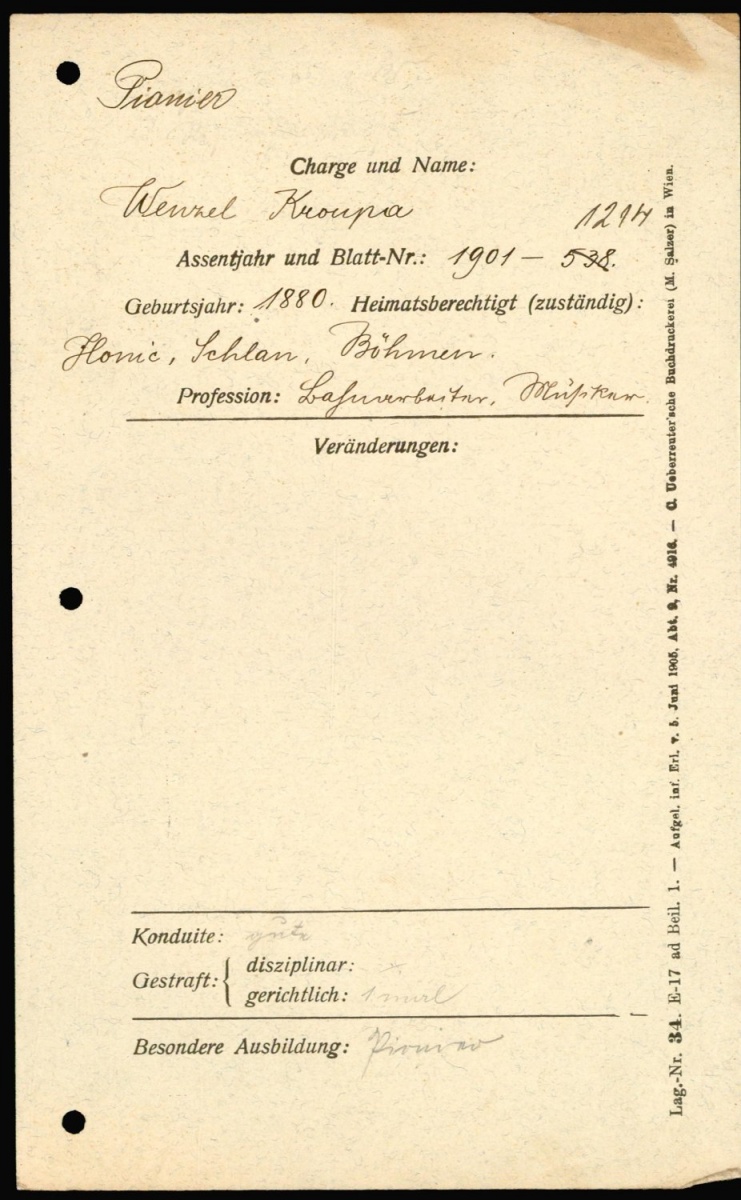 Pionier
Charge und Name:
Wenzel Kroupa
1214
Assentjahr und Blatt-Nr.: 1901 – 538.
Geburtsjahr: 1880. Heimatsberechtigt (zuständig):
Honic, Schlan, Böhmen.
Profession: Bahnarbeiter, Musiker.
Veränderungen:
Konduite: gute
Gestraft: { disziplinar:
gerichtlich: 1 mal
Besondere Ausbildung: Pionier
Lag.-Nr. 34. E-17 ad Beil. 1. — Aufgel. inf. Erl. v. 5. Juni 1905, Abt. 9, Nr. 4916. — C. Ueberreuter'sche Buchdruckerei (M. Salzer) in Wien.